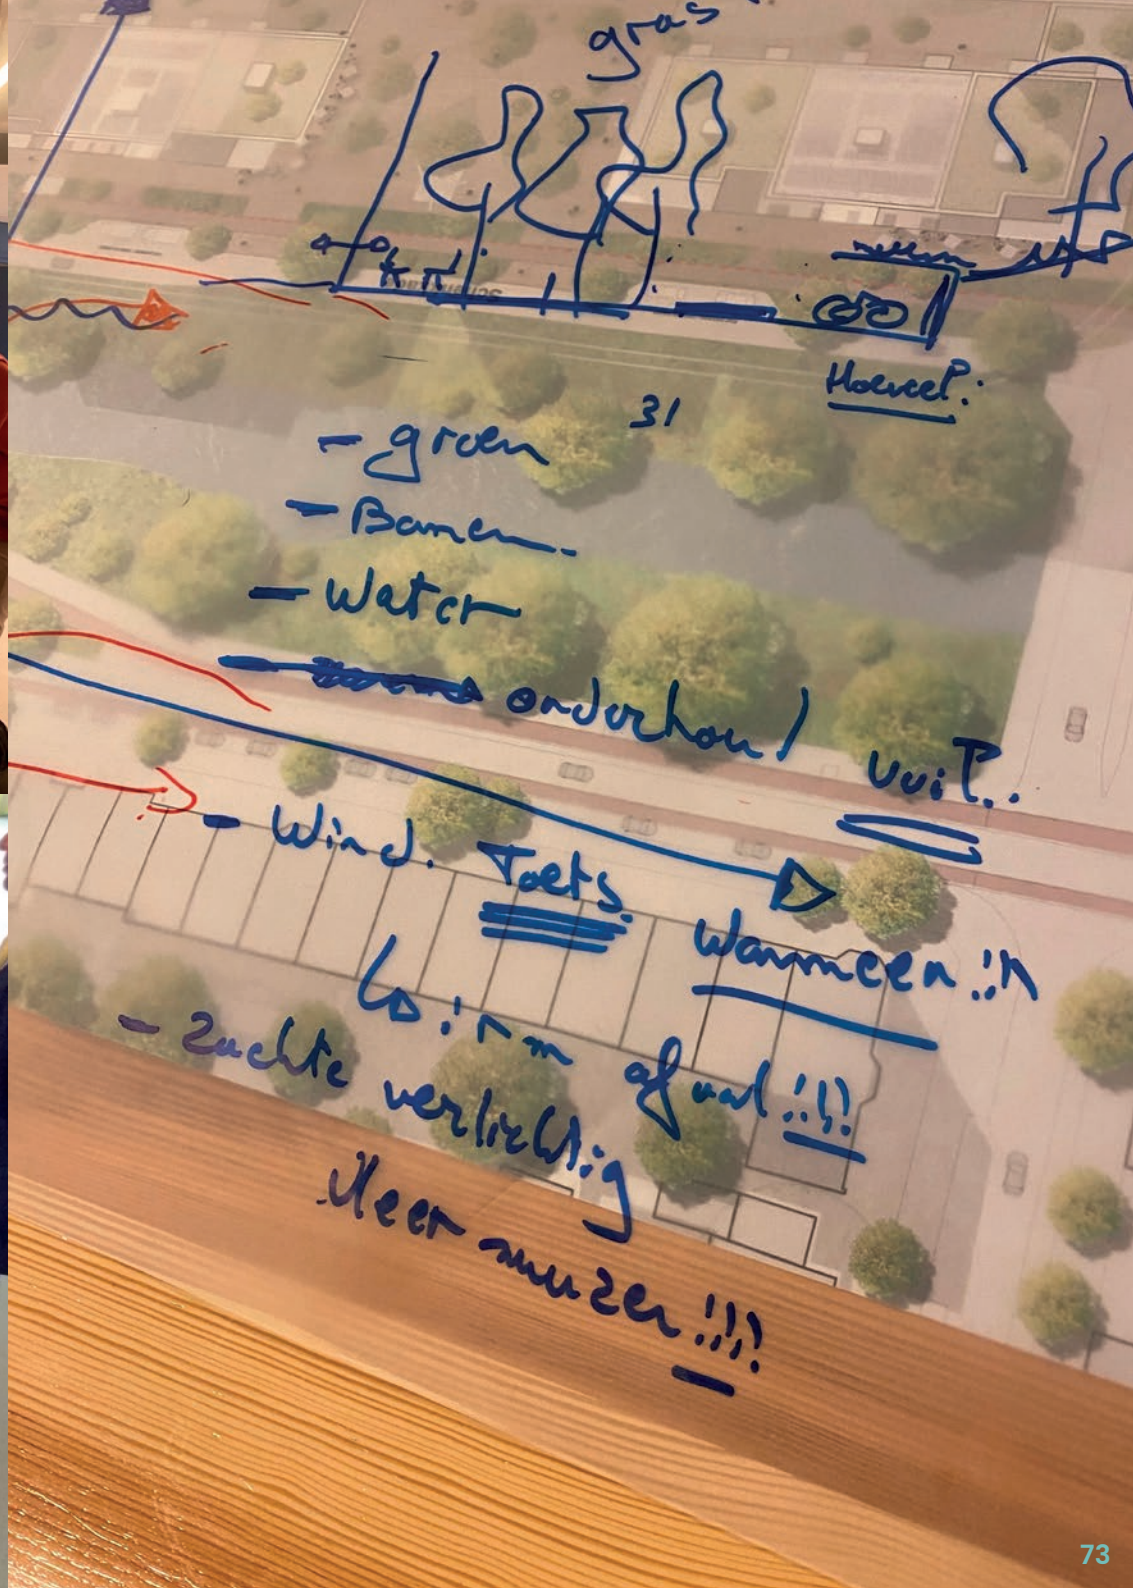 gras
31
- groen
- Bomen
- Water
- onderhoud
vuil..
- Wind. Toets.
Wanneer !!
afval !!!
- Zachte
verlichtig
Meer
!!!!
73